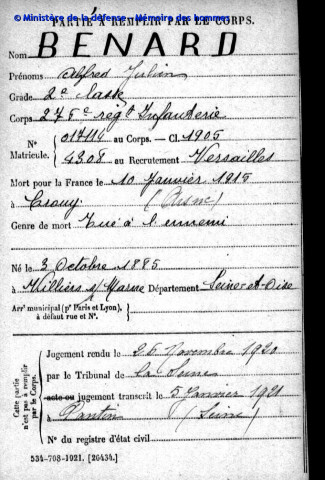 © Ministère de la défense - Mémoire des hommes
PARTIE À REMPLIR PAR LE CORPS.
Nom BENARD
Prénoms Alfred Julien
Grade 2e classe
Corps 276e régt Infanterie
N° 017114 au Corps. — Cl. 1905
Matricule. 4308 au Recrutement Versailles
Mort pour la France le 10 Janvier 1915
à Crouy (Aisne)
Genre de mort Tué à l'ennemi
Né le 3 Octobre 1885
à Villiers s/ Marne Département Seine et Oise
Arr' municipal (p' Paris et Lyon), à défaut rue et N°.
Cette partie n'est pas à remplir par le Corps.
Jugement rendu le 25 Novembre 1920
par le Tribunal de la Seine
acte ou jugement transcrit le 5 Janvier 1921
à Pantin (Seine)
N° du registre d'état civil
534-708-1921. [26434.]